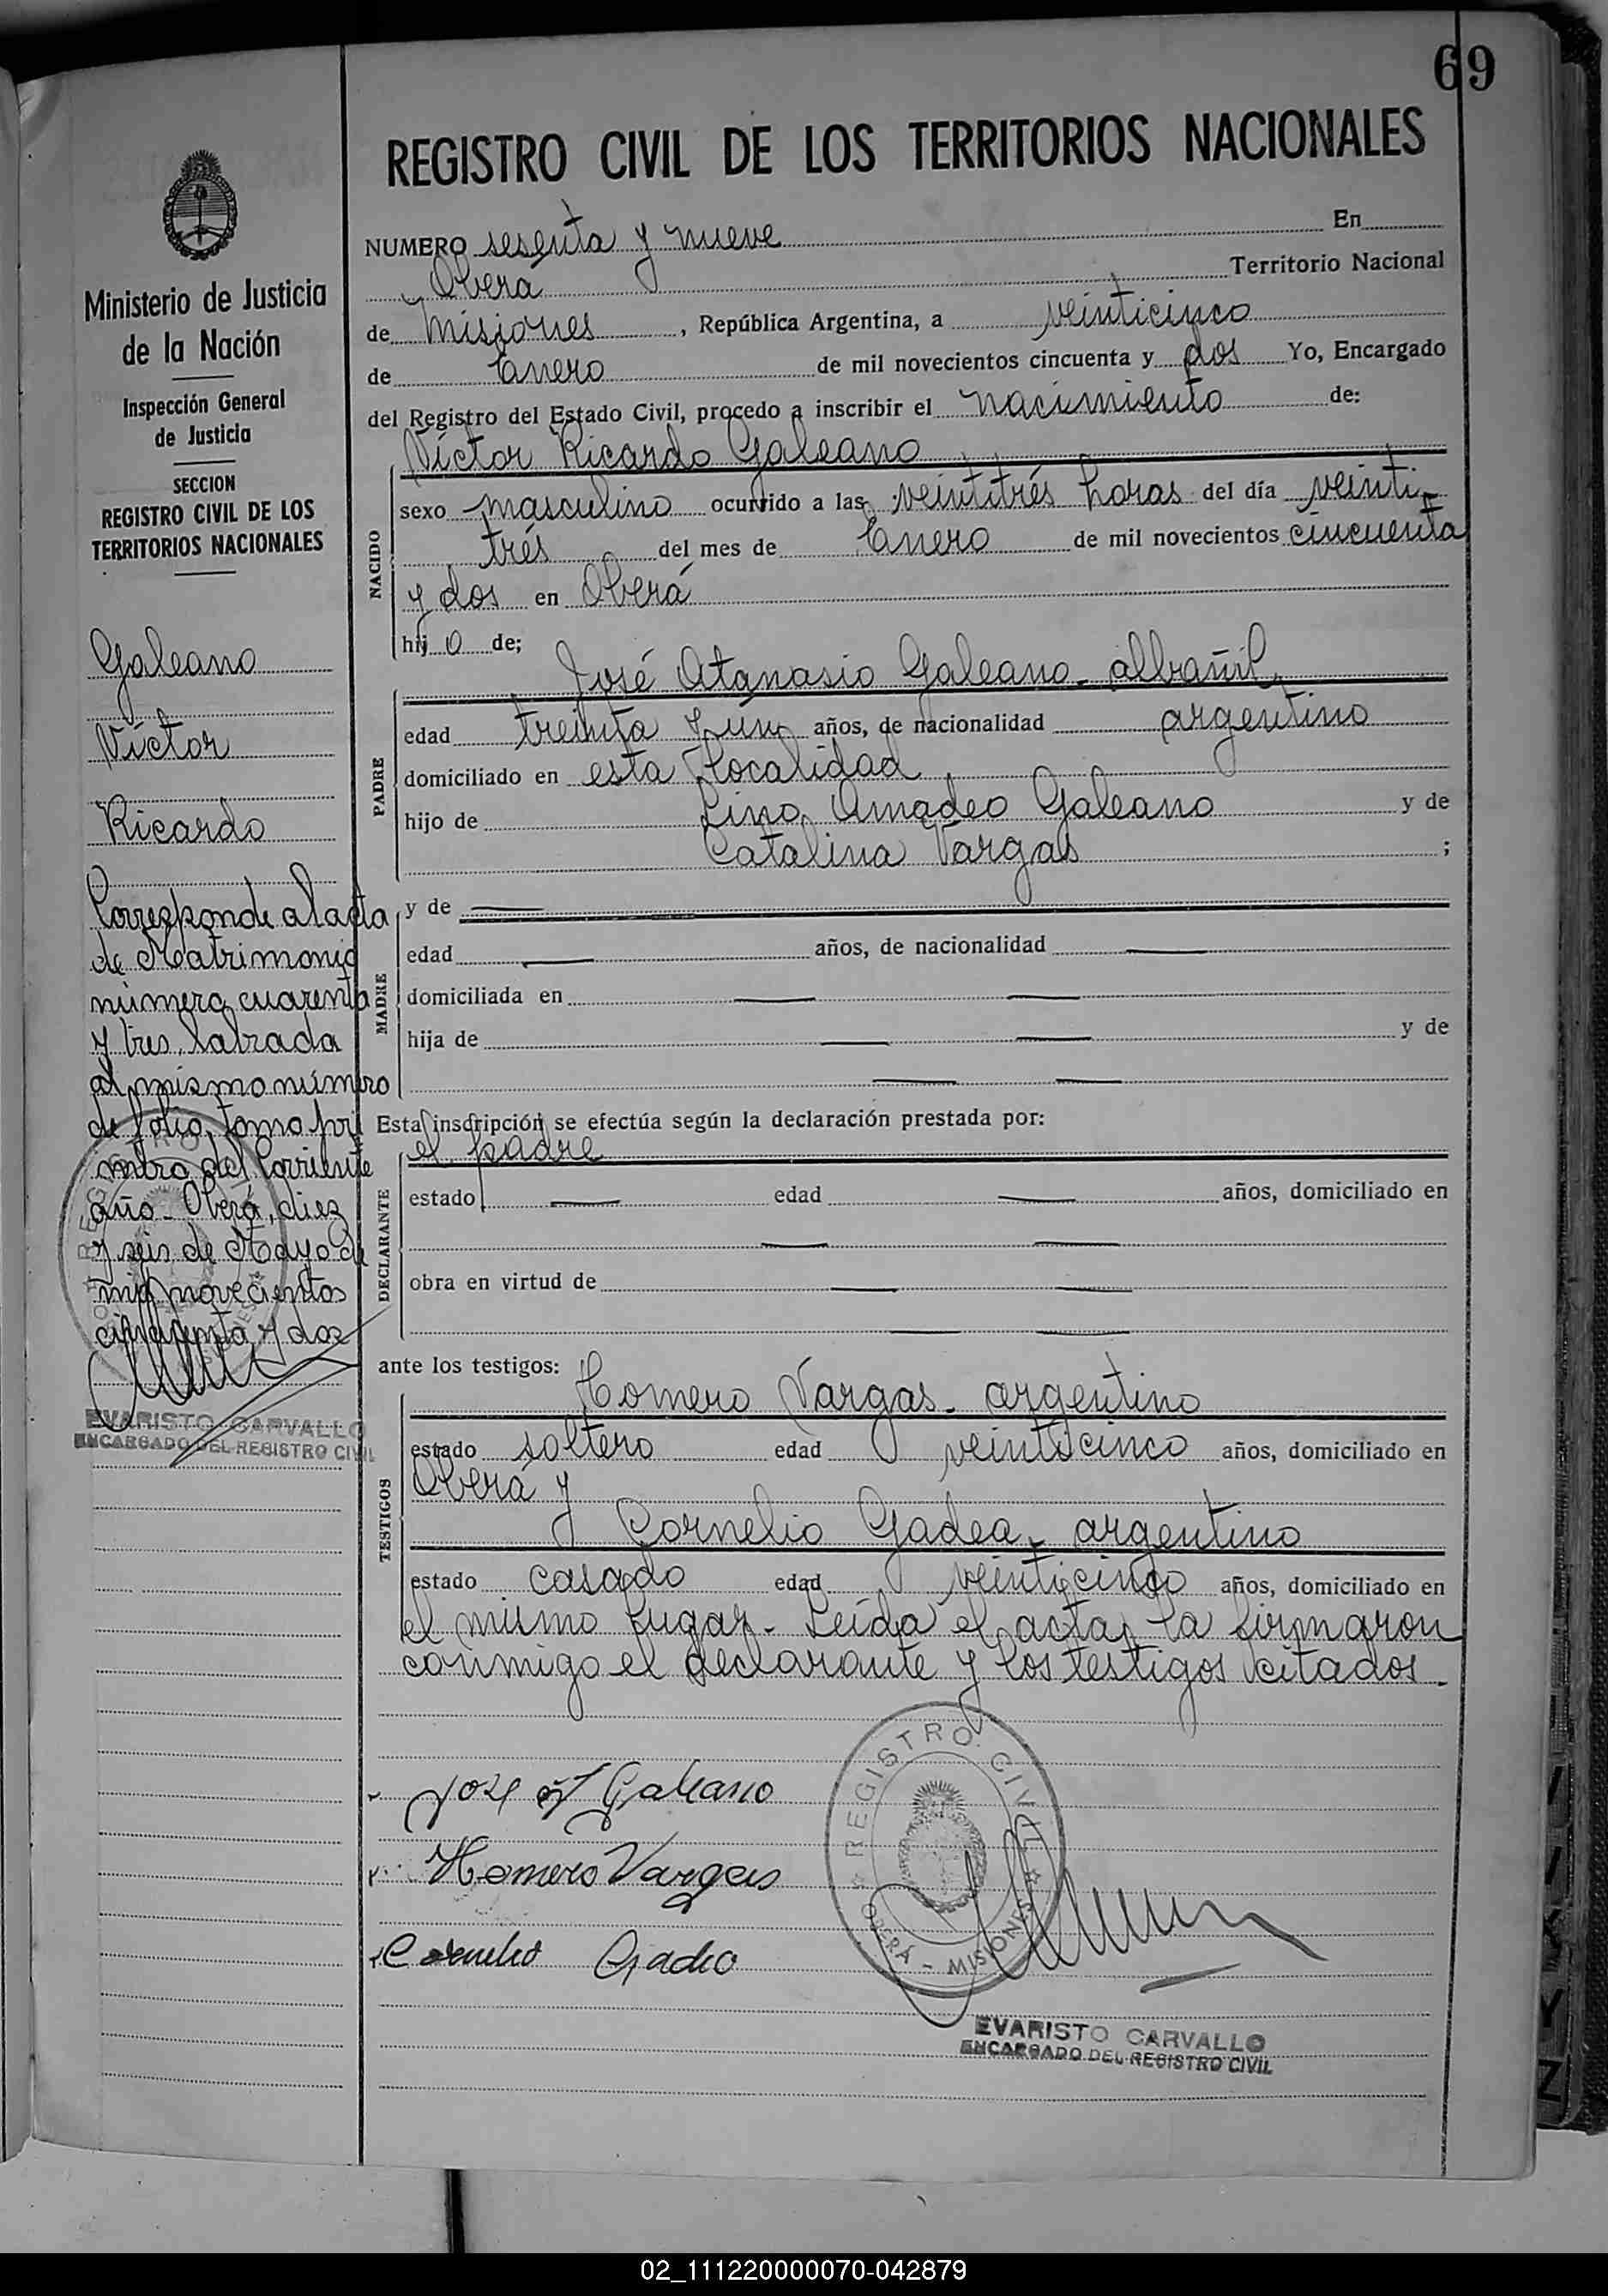 69
REGISTRO CIVIL DE LOS TERRITORIOS NACIONALES
Ministerio de Justicia
de la Nación
Inspección General
de Justicia
SECCION
REGISTRO CIVIL DE LOS
TERRITORIOS NACIONALES
Galeano
Víctor
Ricardo
Corresponde al acta
de Matrimonio
número cuarenta
y tres, labrada
al mismo número
de folio, tomo pri
mero del corriente
año - Oberá, diez
y seis de Mayo de
mil novecientos
cincuenta y dos
EVARISTO CARVALLO
ENCARGADO DEL REGISTRO CIVIL
NUMERO sesenta y nueve En
Oberá Territorio Nacional
de Misiones, República Argentina, a veinticinco
de Enero de mil novecientos cincuenta y dos Yo, Encargado
del Registro del Estado Civil, procedo a inscribir el nacimiento de:
Víctor Ricardo Galeano
NACIDO
sexo masculino ocurrido a las veintitrés horas del día veinti-
trés del mes de Enero de mil novecientos cincuenta
y dos en Oberá
hijo de;
José Atanasio Galeano - albañil,
PADRE
edad treinta y un años, de nacionalidad argentino
domiciliado en esta localidad
hijo de Lino Amadeo Galeano y de
Catalina Vargas ;
MADRE
y de
edad años, de nacionalidad
domiciliada en
hija de y de
Esta inscripción se efectúa según la declaración prestada por:
el padre
DECLARANTE
estado edad años, domiciliado en
obra en virtud de
ante los testigos:
Homero Vargas - argentino
TESTIGOS
estado soltero edad veinticinco años, domiciliado en
Oberá y
Cornelio Gadea, argentino
estado casado edad veinticinco años, domiciliado en
el mismo lugar - Leída el acta, la firmaron
conmigo el declarante y los testigos citados -
Jose A Galeano
Homero Vargas
Cornelio Gadea
REGISTRO CIVIL
OBERÁ - MISIONES
EVARISTO CARVALLO
ENCARGADO DEL REGISTRO CIVIL
02_111220000070-042879